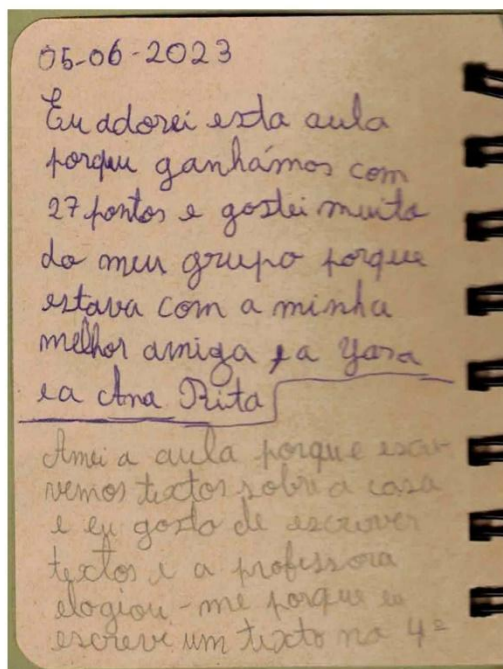 05-06-2023
Eu adorei esta aula
porqu ganhámos com
27 pontos e gostei muito
do meu grupo porque
estava com a minha
melhor amiga, a Yara
e a Ana Rita
Amei a aula porque escre-
vemos textos sobre a casa
e eu gosto de escrever
textos e a professora
elogiou-me porque eu
escrevi um texto na 4ª